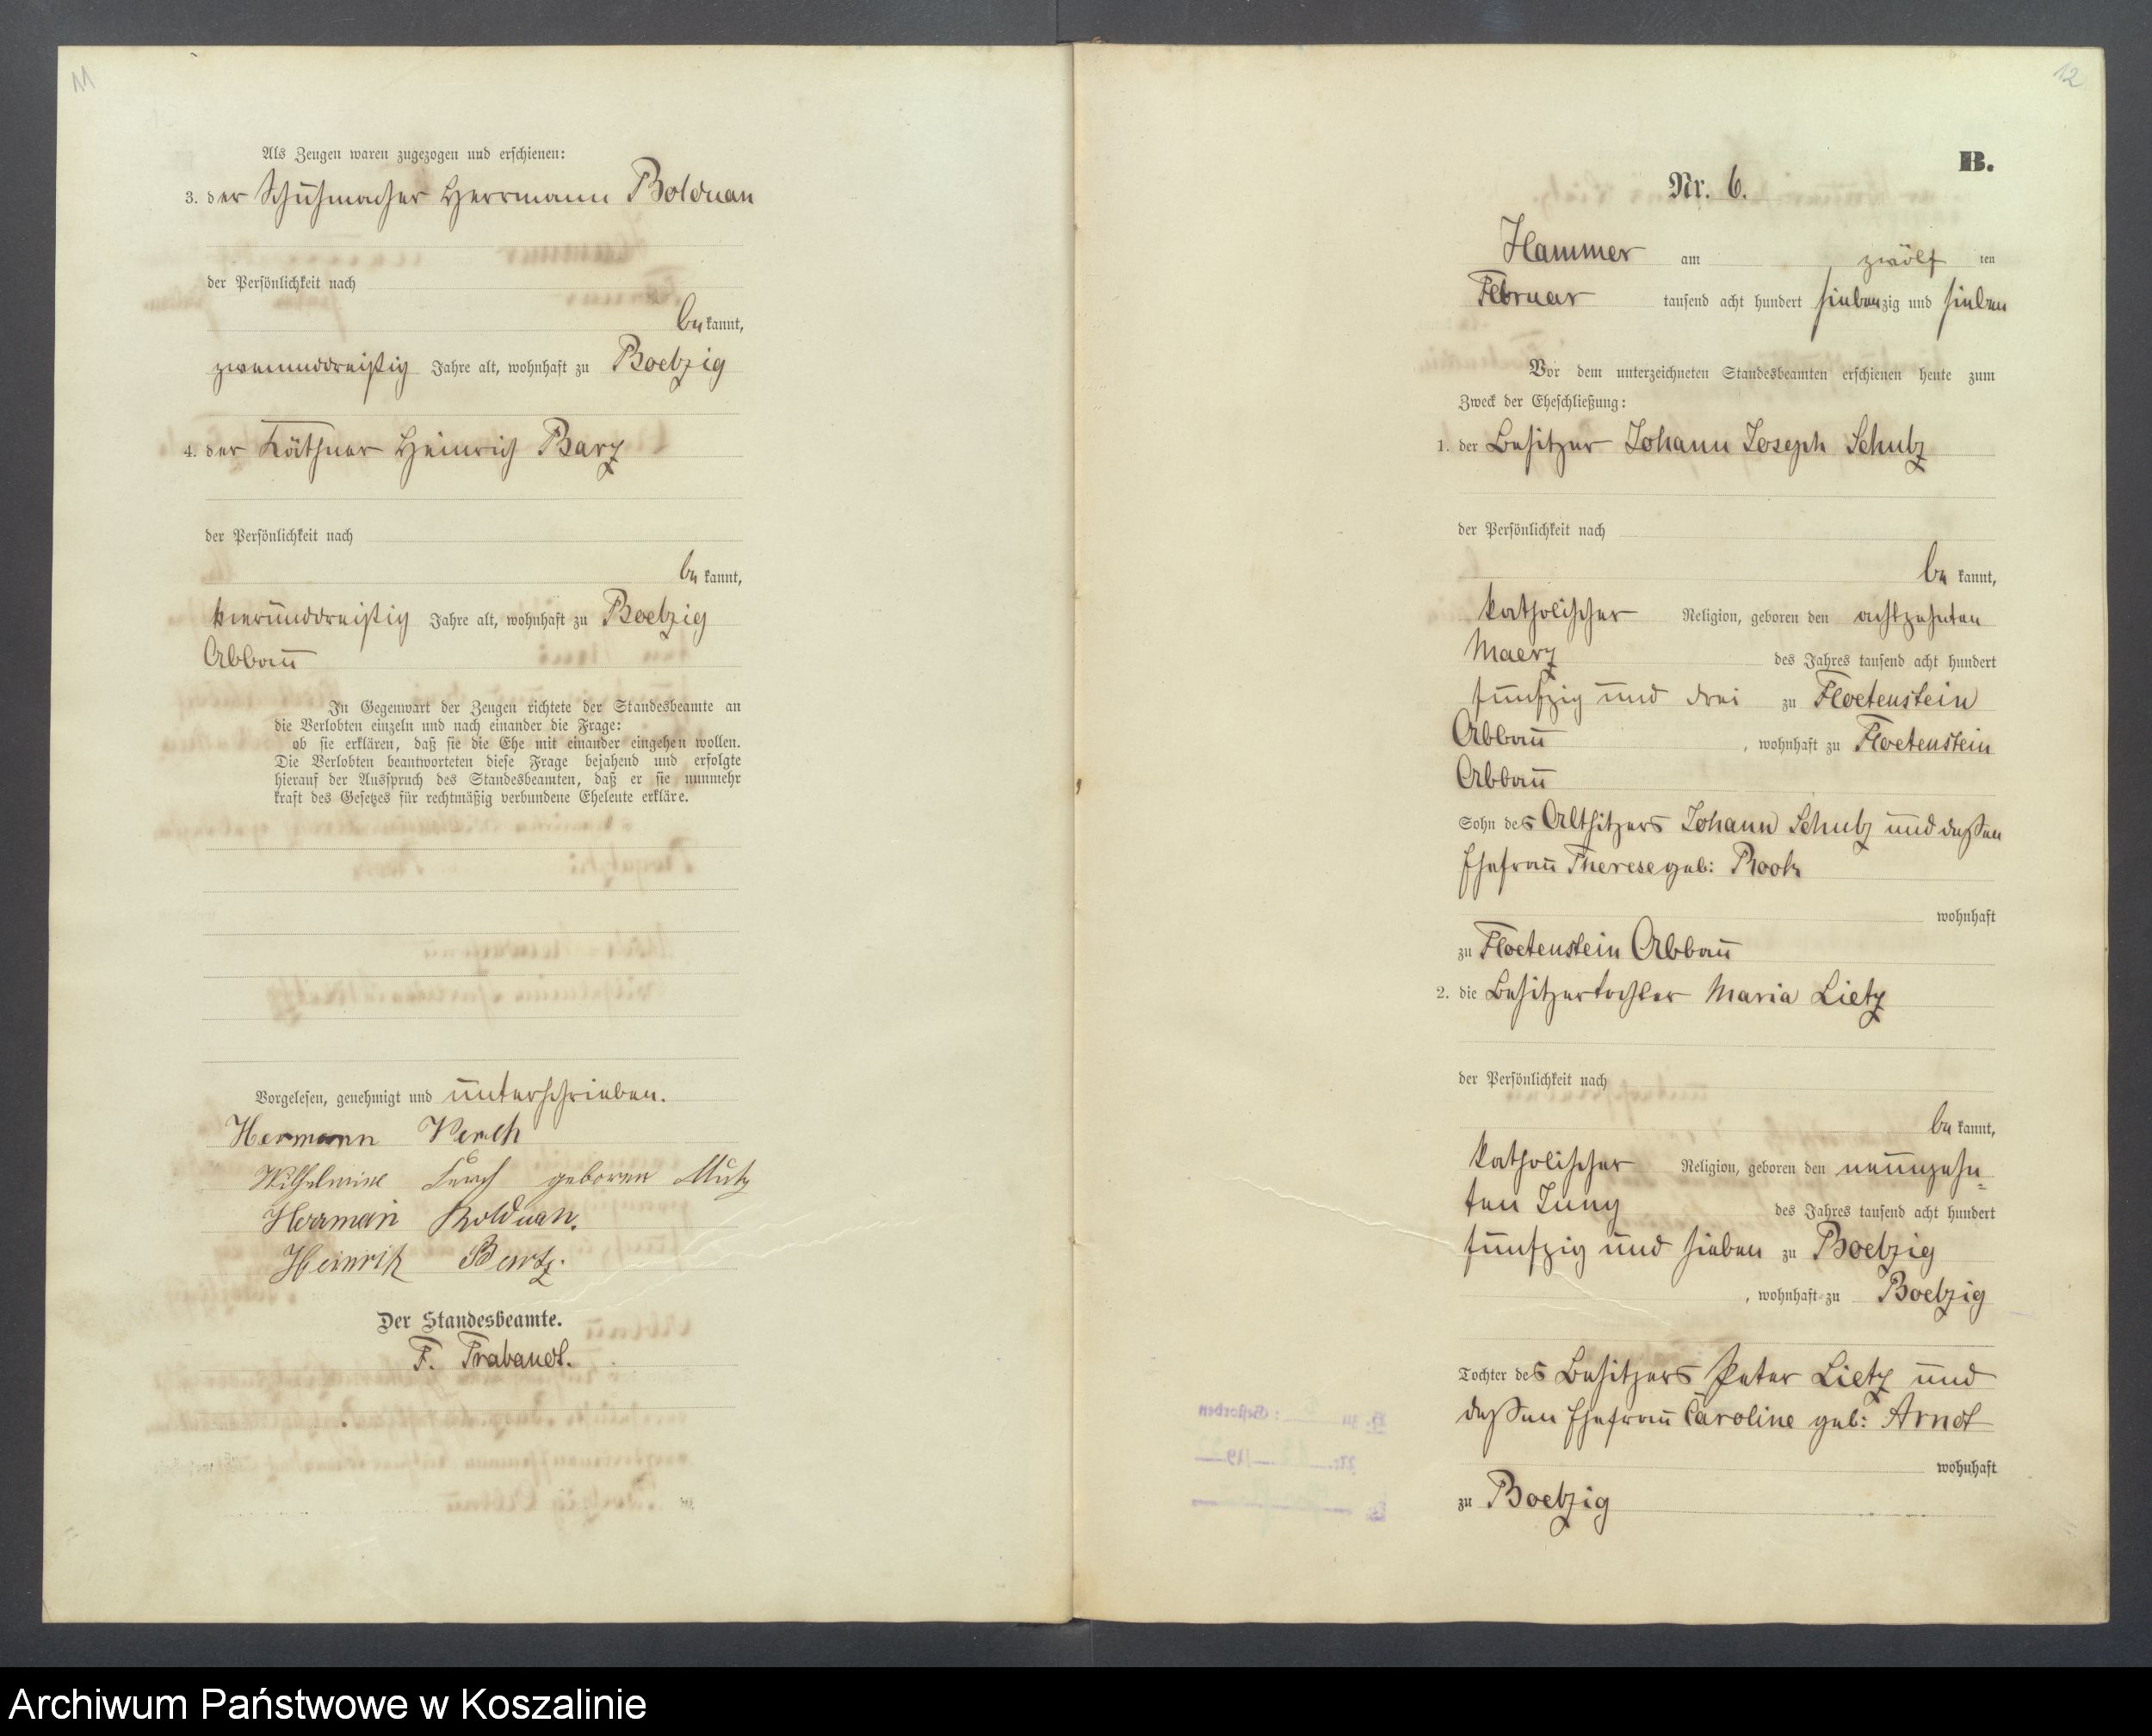 11
Als Zeugen waren zugezogen und erschienen:
3. der Schuhmacher Herrmann Bolduan
der Persönlichkeit nach
bekannt,
zweiunddreißig Jahre alt, wohnhaft zu Boelzig
4. der Käthner Heinrich Barz
der Persönlichkeit nach
bekannt,
vierunddreißig Jahre alt, wohnhaft zu Boelzig
Abbau
In Gegenwart der Zeugen richtete der Standesbeamte an
die Verlobten einzeln und nach einander die Frage:
ob sie erklären, daß sie die Ehe mit einander eingehen wollen.
Die Verlobten beantworteten diese Frage bejahend und erfolgte
hierauf der Ausspruch des Standesbeamten, daß er sie nunmehr
kraft des Gesetzes für rechtmäßig verbundene Eheleute erkläre.
Vorgelesen, genehmigt und unterschrieben.
Hermann
Wilhelmine geboren Mutz
Herman Bolduan.
Heinrich
Der Standesbeamte.
F. Trabandt.
12
B.
Nr. 6.
Hammer am zwölf ten
Februar tausend acht hundert siebenzig und sieben
Vor dem unterzeichneten Standesbeamten erschienen heute zum
Zweck der Eheschließung:
1. der Besitzer Johann Joseph Schulz
der Persönlichkeit nach
bekannt,
katholischer Religion, geboren den achtzehnten
Maerz des Jahres tausend acht hundert
fünfzig und drei zu Floetenstein
Abbau, wohnhaft zu Floetenstein
Abbau
Sohn des Altsitzers Johann Schulz und dessen
Ehefrau Therese geb: Rook
wohnhaft
zu Floetenstein Abbau
2. die Besitzertochter Maria Lietz
der Persönlichkeit nach
bekannt,
katholischer Religion, geboren den neunzehn=
ten Juny des Jahres tausend acht hundert
fünfzig und sieben zu Boelzig
, wohnhaft zu Boelzig
Tochter des Besitzers Peter Lietz und
dessen Ehefrau Caroline geb: Arndt
wohnhaft
zu Boelzig
Archiwum Państwowe w Koszalinie